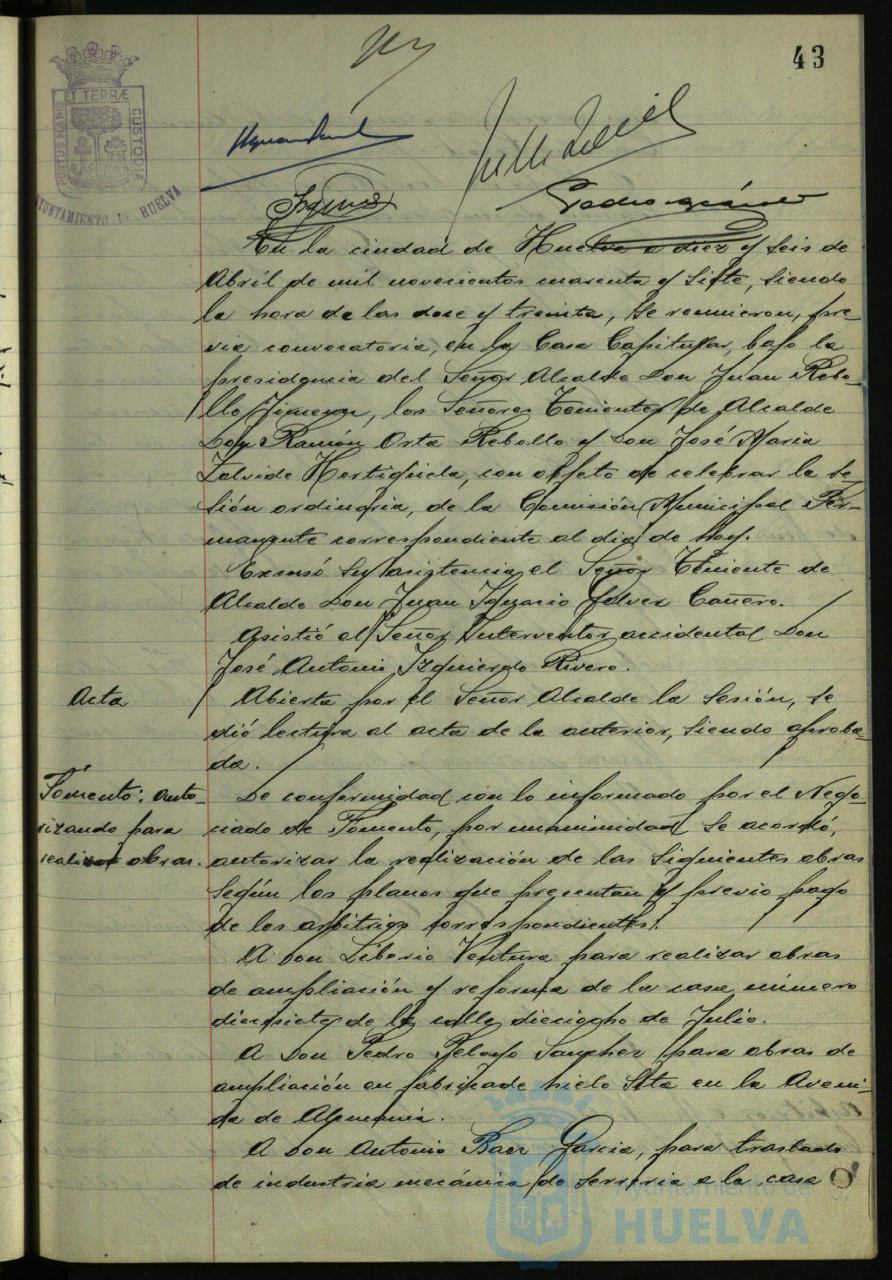 43
PORTUS MARIS
ET TERRÆ
CUSTODIA
AYUNTAMIENTO DE HUELVA
En la ciudad de Huelva a diez y seis de
Abril de mil novecientos cuarenta y siete, siendo
la hora de las doce y treinta, se reunieron, pre-
via convocatoria, en la Casa Capitular, bajo la
presidencia del Señor Alcalde Don Juan Rebo-
llo Jimenez, los Señores Tenientes de Alcalde
Don Ramón Orta Rebollo y Don José Maria
Zalvide Hortigüela, con objeto de celebrar la se-
sión ordinaria, de la Comisión Municipal Per-
manente correspondiente al dia de hoy.
Excusó su asistencia el Señor Teniente de
Alcalde Don Juan Ignacio Galvez Cañero.
Asistió el Señor Interventor accidental Don
José Antonio Izquierdo Rivero.
Acta
Abierta por el Señor Alcalde la sesión, se
dió lectura al acta de la anterior, siendo aproba-
da.
Fomento: auto-
rizando para
realizar obras.
De conformidad con lo informado por el Nego-
ciado de Fomento, por unanimidad se acordó,
autorizar la realización de las siguientes obras
según los planos que presentan y previo pago
de los arbitrios correspondientes.
A Don Liborio Ventura para realizar obras
de ampliación y reforma de la casa número
diecisiete de la calle dieciocho de Julio.
A Don Pedro Pelayo Sanchez para obras de
ampliación en fábrica de hielo sita en la Aveni-
da de Alemania.
A Don Antonio Baez Garcia, para traslado
de industria mecánica de serreria a la casa
Ayuntamiento de
HUELVA